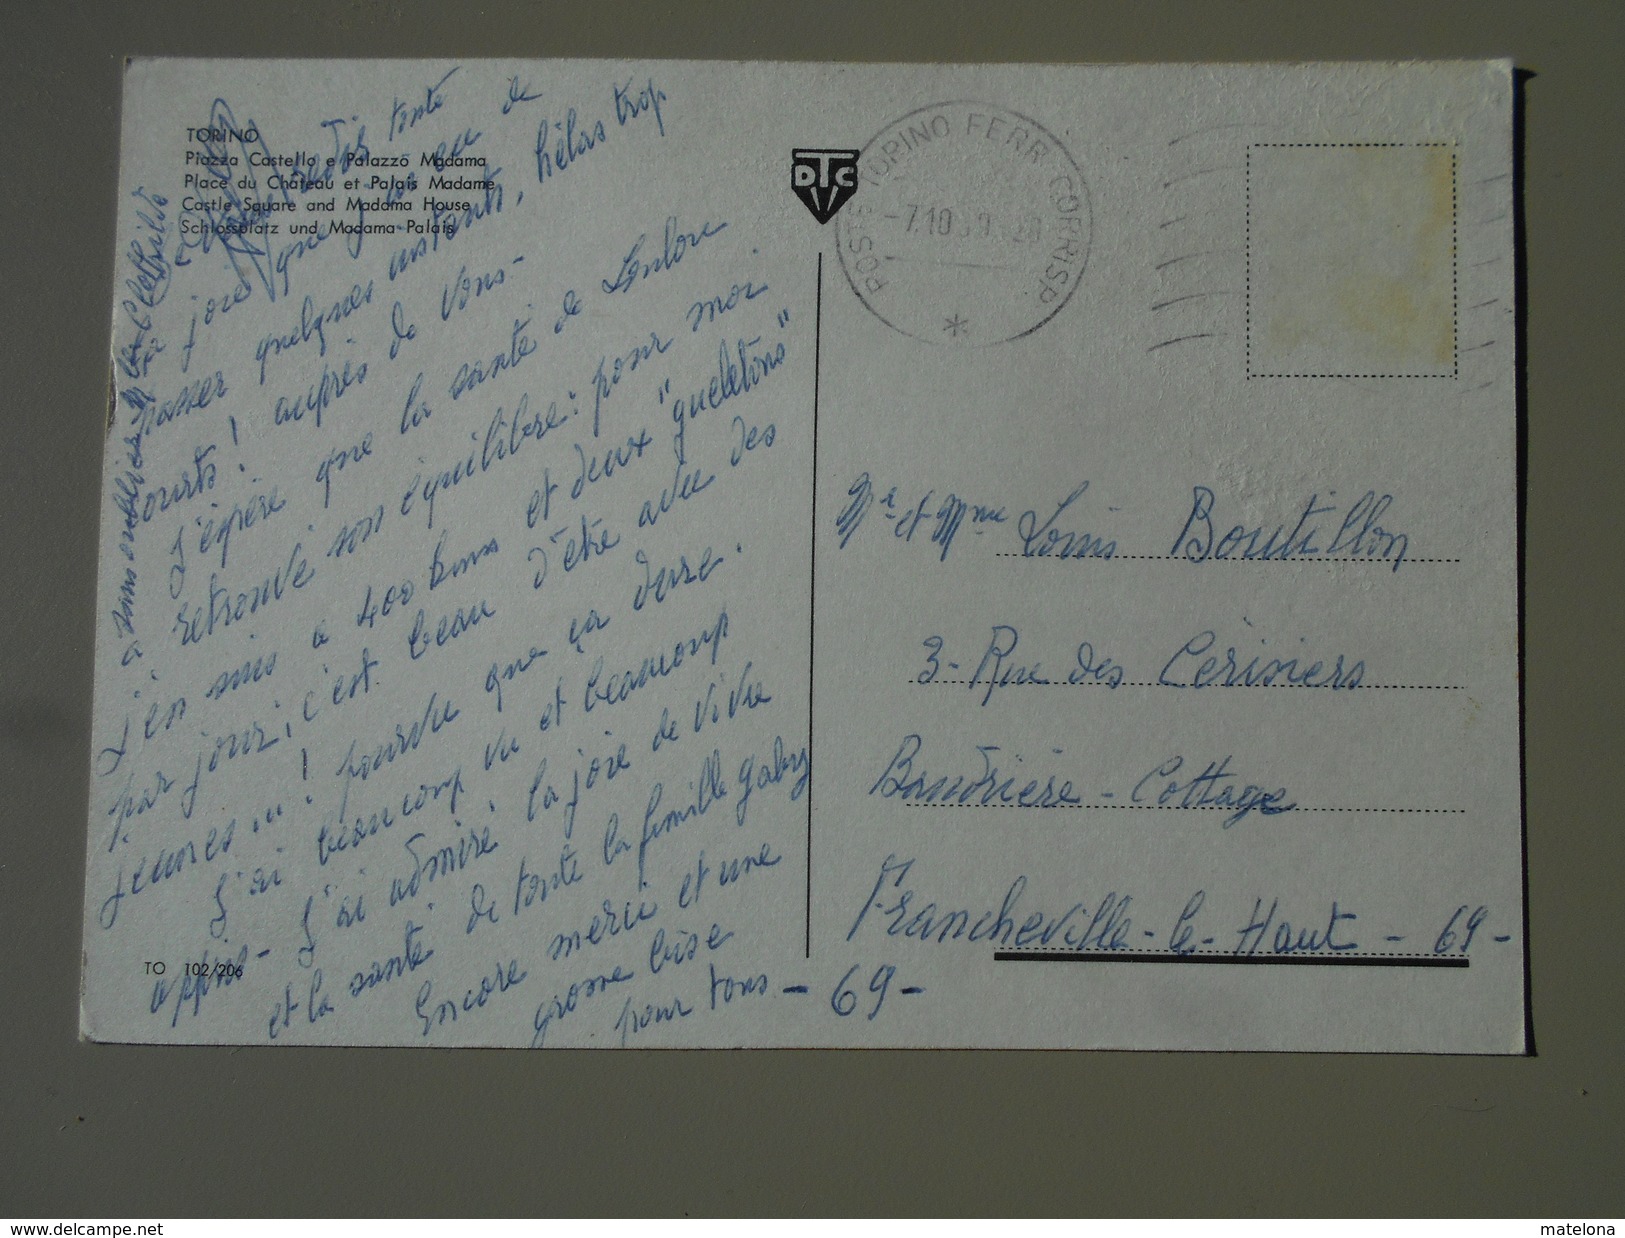 TORINO
Piazza Castello e Palazzo Madama
Place du Château et Palais Madame
Castle Square and Madama House
Schlossplatz und Madama Palais
redis toute
joie que j'ai eu de
passer quelques instants, hélas trop
courts! auprès de vous -
J'espère que la santé de Loulou
a retrouvé son équilibre: pour moi
j'en suis à 400 bornes et deux "gueletons"
par jour; c'est beau d'être avec des
jeunes...! pourvu que ça dure.
J'ai beaucoup vu et beaucoup
appris - J'ai admiré la joie de vivre
et la santé de toute la famille Gaby
Encore merci et une
grosse bise
pour tous - 69 -
sans oublier Clothilde
TO 102/206
DTC
POSTE TORINO FERR CORRISP
-7.10
*
Mr et Mme Louis Boutillon
3 - Rue des Cerisiers
Bandrière - Cottage
Francheville - le - Haut - 69 -
www.delcampe.net
matelona